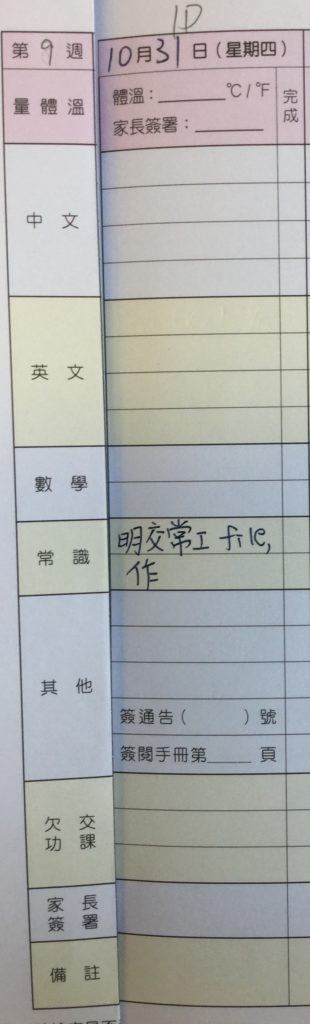 1D
第9週 10月31日(星期四)
量體溫 體溫:______℃/℉ 完成
家長簽署:______
中文
英文
數學
常識 明交常工 file,
作
其他
簽通告( )號
簽閱手冊第____頁
欠交功課
家長簽署
備註